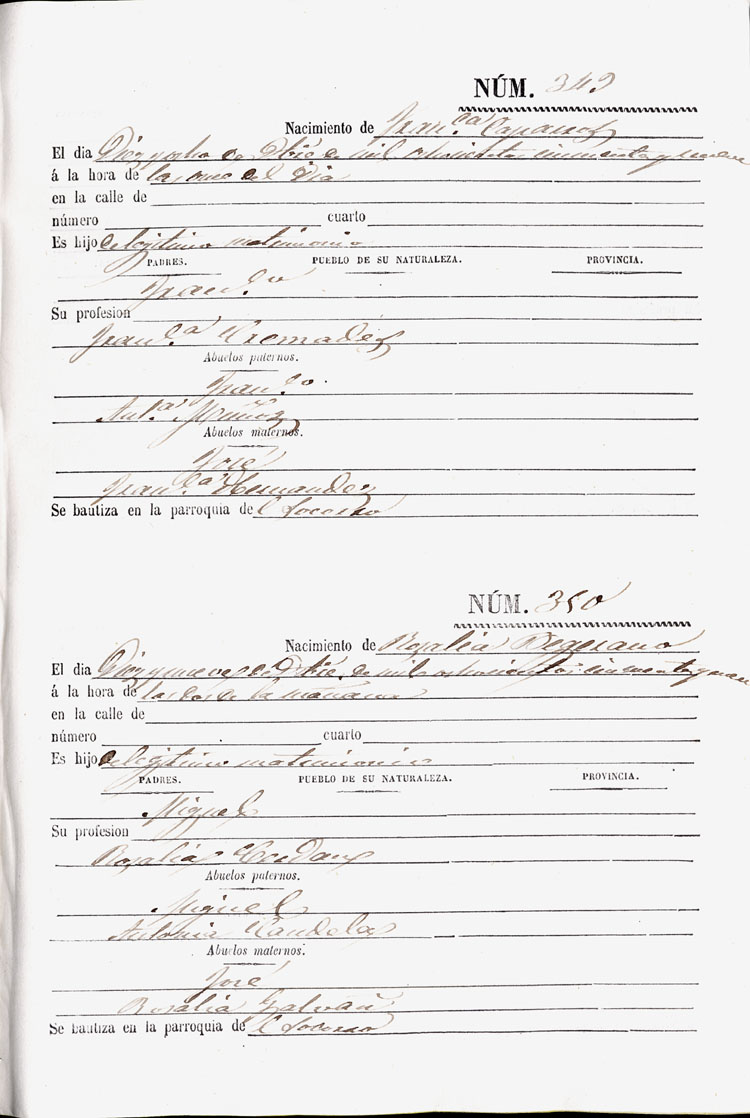 NÚM. 349
Nacimiento de Fran.ca Caparros
El dia Diez y ocho de Dbre de mil ochocientos cincuenta y nueve
á la hora de las once del Dia
en la calle de
número cuarto
Es hijo de legitimo matrimonio
PADRES. PUEBLO DE SU NATURALEZA. PROVINCIA.
Fran.co
Su profesion
Fran.ca Cremades
Abuelos paternos.
Fran.co
Ant.a Muñoz
Abuelos maternos.
José
Fran.ca Hernandez
Se bautiza en la parroquia del Socorro
NÚM. 350
Nacimiento de Rosalia
El dia Diez y nueve de Dbre. de mil ochocientos cincuenta y nueve
á la hora de las dos de la mañana
en la calle de
número cuarto
Es hijo de legitimo matrimonio
PADRES. PUEBLO DE SU NATURALEZA. PROVINCIA.
Miguel
Su profesion
Rosalia
Abuelos paternos.
Miguel
Antonia Candela
Abuelos maternos.
José
Rosalia Galvañ
Se bautiza en la parroquia del Socorro